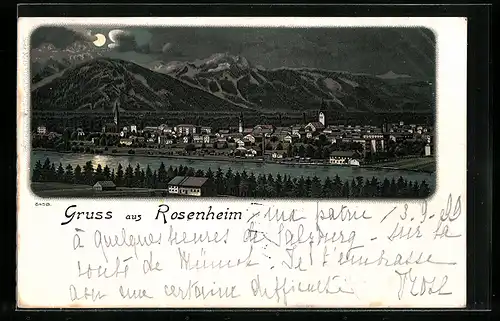 6453.
Gruss aus Rosenheim
ma patrie / 3.9.99
à quelques heures de Salzburg - sur la
route de Je t'embrasse
avec une certaine difficulté